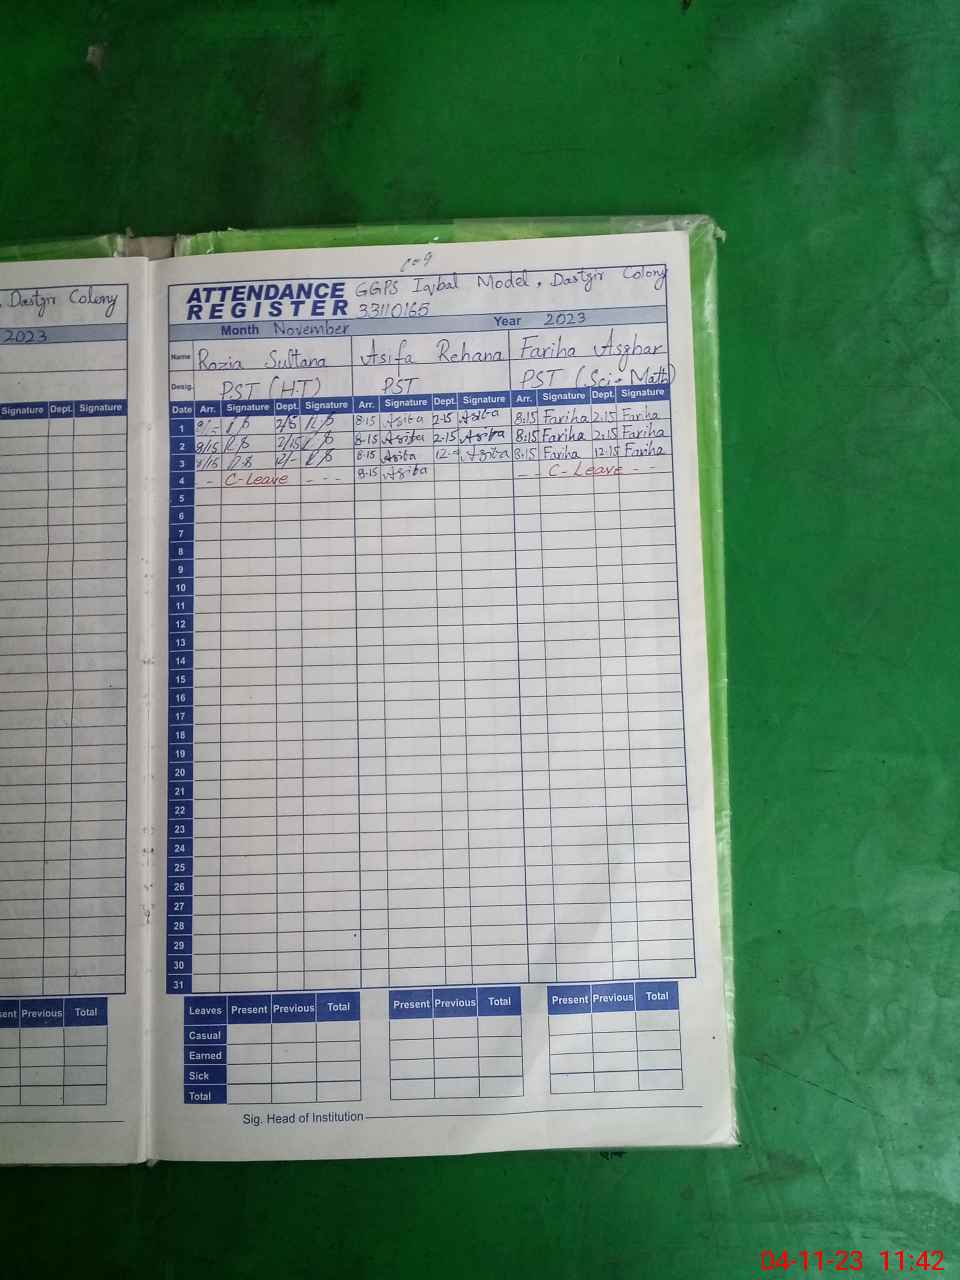 , Dastgir Colony
2023
Signature Dept. Signature
ATTENDANCE REGISTER
GGPS Iqbal Model, Dastgir Colony
33110165
Month November Year 2023
Name Razia Sultana Asifa Rehana Fariha Asghar
Desig. PST (H.T) PST PST (Sci-Math)
Date Arr. Signature Dept. Signature Arr. Signature Dept. Signature Arr. Signature Dept. Signature
1 8-15 Asifa 2-15 Asifa 8:15 Fariha 2:15 Fariha
2 8/15 RS 2/15 RS 8-15 Asifa 2-15 Asifa 8:15 Fariha 2:15 Fariha
3 8/15 RS 12/- RS 8-15 Asifa Asifa 8:15 Fariha 12:15 Fariha
4 - - C-Leave - - - 8-15 Asifa - - C-Leave - -
5
6
7
8
9
10
11
12
13
14
15
16
17
18
19
20
21
22
23
24
25
26
27
28
29
30
31
Previous Total
Leaves Present Previous Total Present Previous Total Present Previous Total
Casual
Earned
Sick
Total
Sig. Head of Institution
04-11-23 11:42